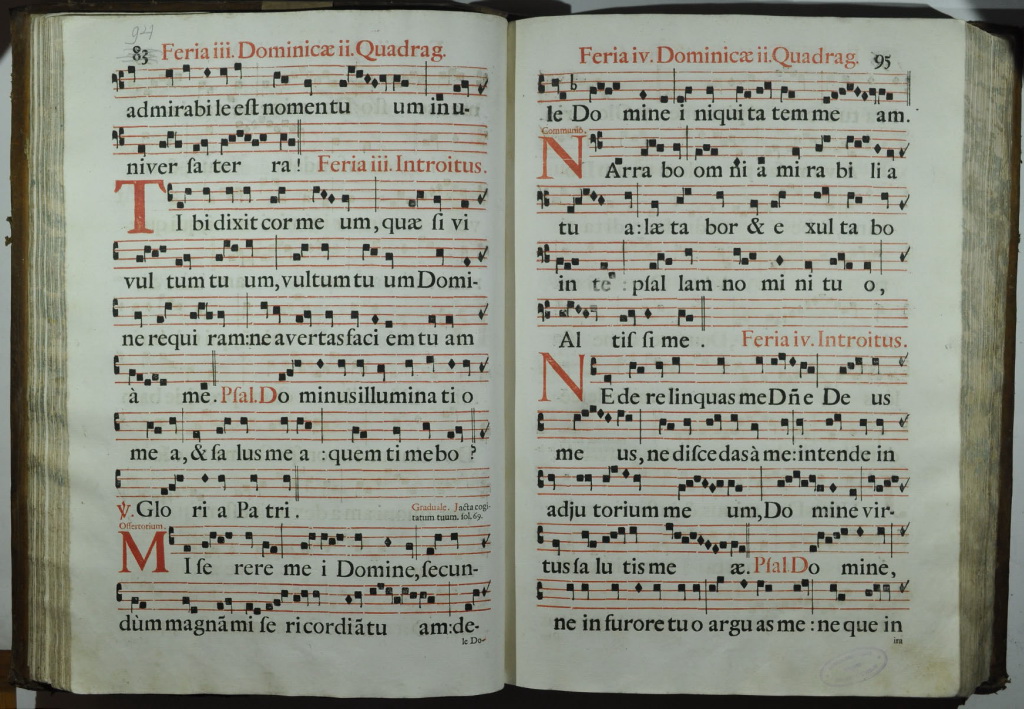 94
83 Feria iii. Dominicæ ii. Quadrag.
admirabi le eſt nomen tu um in u-
niver ſa ter ra! Feria iii. Introitus.
TI bi dixit cor me um, quæ ſi vi
vul tum tu um, vultum tu um Domi-
ne requi ram: ne avertas faci em tu am
à me. Pſal. Do minus illumina ti o
me a, & ſa lus me a : quem ti mebo ?
℣. Glo ri a Pa tri. Graduale. Jacta cogi-
tatum tuum. fol. 69.
Offertorium.
MI ſe rere me i Domine, ſecun-
dùm magnã mi ſe ricordiã tu am: de-
le Do-
Feria iv. Dominicæ ii. Quadrag. 95
le Do mine i niqui ta tem me am.
Communio.
NArra bo om ñi a mi ra bi li a
tu a: læ ta bor & e xul ta bo
in te : pſal lam no mi ni tu o,
Al tiſ ſi me . Feria iv. Introitus.
NE de re linquas me Dñe De us
me us, ne diſcedas à me: intende in
adju torium me um, Do mine vir-
tus ſa lu tis me æ. Pſal. Do mine,
ne in furore tu o argu as me : ne que in
ira